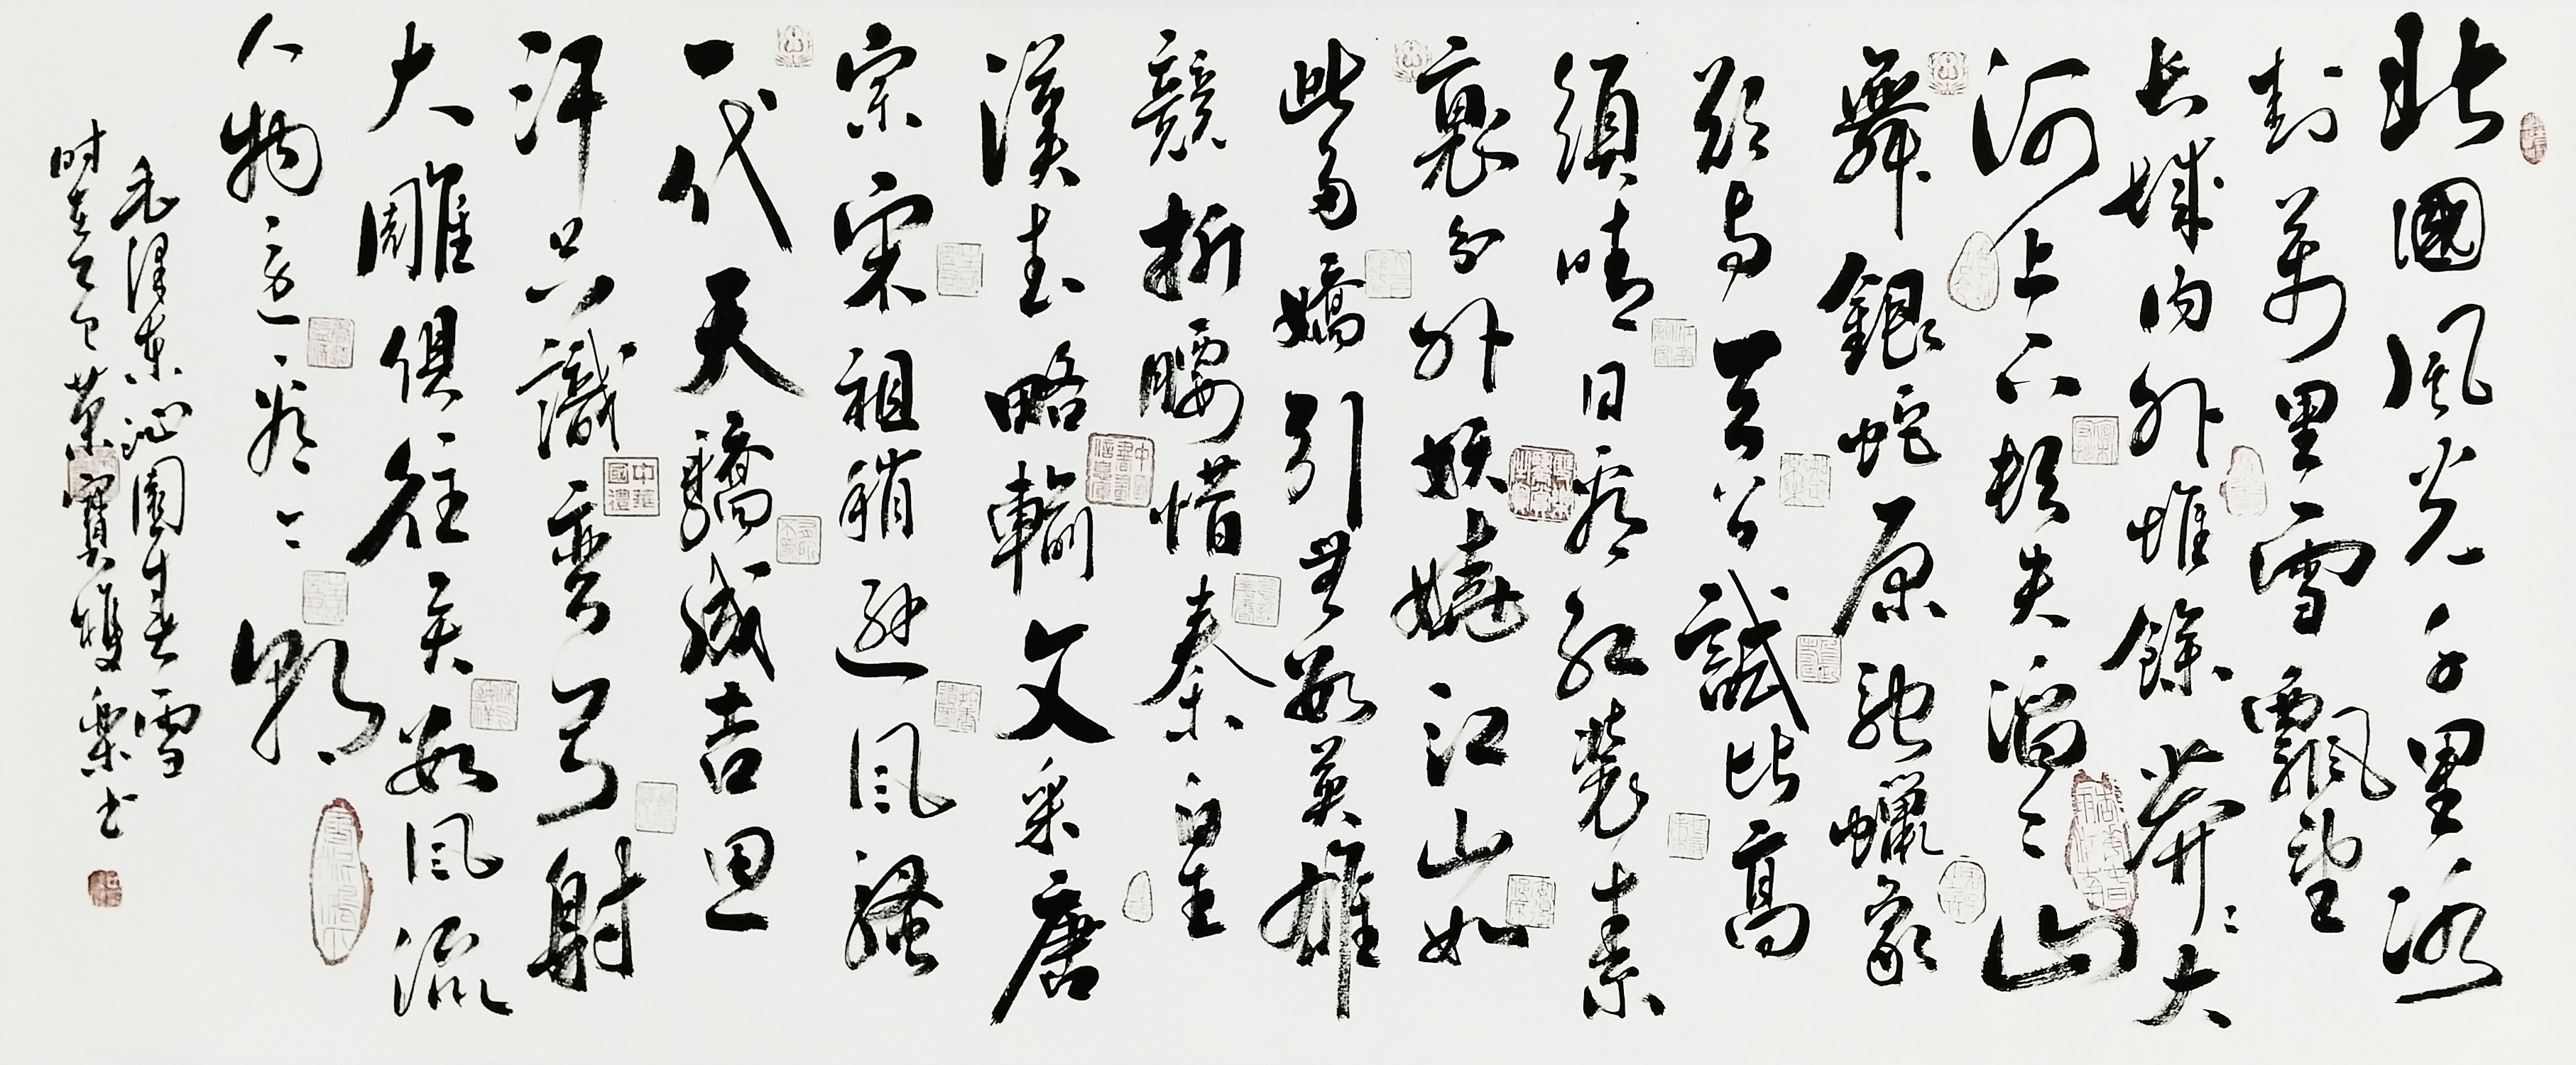 北國風光千里冰
封萬里雪飄望
長城内外惟餘莽々大
河上下頓失滔々山
舞銀蛇原馳蠟象
欲与天公試比高
須晴日看紅裝素
裹分外妖嬈江山如
此多嬌引無數英雄
競折腰惜秦皇
漢武略輸文采唐
宗宋祖稍遜風騷
一代天驕成吉思
汗只識彎弓射
大雕俱往矣數風流
人物還看今朝
毛澤東沁園春雪
時在乙巳 寶雙樂書
中華國禮